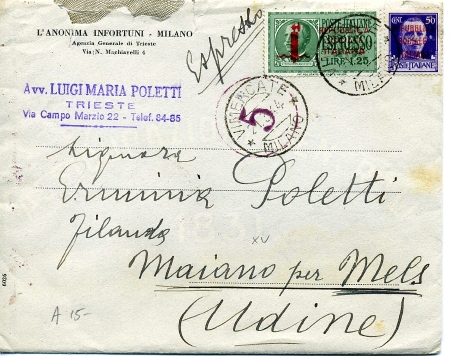 L'ANONIMA INFORTUNI - MILANO
Agenzia Generale di Trieste
Via: N. Machiavelli 4
Espresso
POSTE ITALIANE
ESPRESSO
LIRE 1,25
CENT 50
Avv. LUIGI MARIA POLETTI
TRIESTE
Via Campo Marzio 22 - Telef. 84-85
VIMERCATE
MILANO
5
Signora
Erminia Poletti
Filanda
XV
Maiano per Mels
(Udine)
A 15-